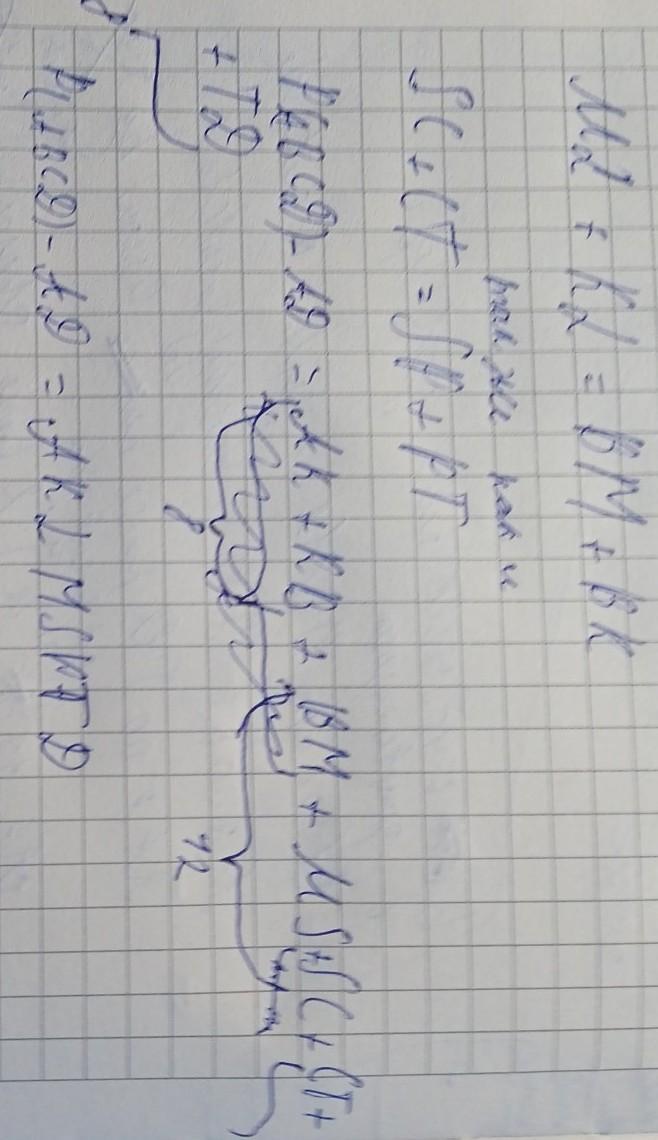 ML + KL = BM + BK
так же как и
SC + CT = SP + PT
P(ABCD) - AD = AK + KB + BM + MS + SC + CT +
+ TD
8
12
8
P(ABCD) - AD = AKLMSPTD